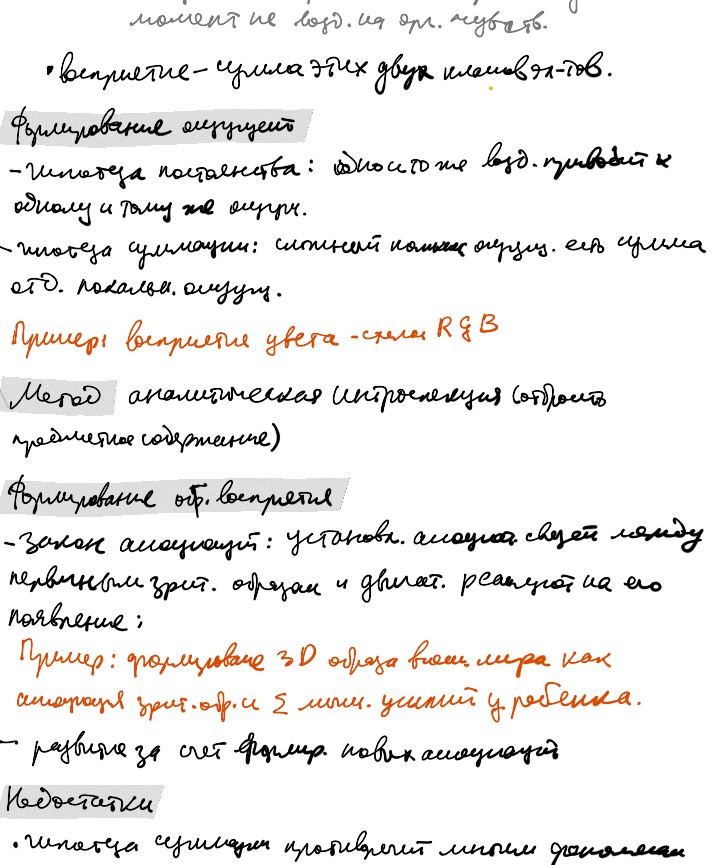 момент не возд. на орг. чувств.
• восприятие – сумма этих двух классов эл-тов.
Формирование ощущений
– гипотеза постоянства: одно и то же возд. приводит к
одному и тому же ощущ.
– гипотеза суммации: сложный компл. ощущ. есть сумма
отд. локальн. ощущ.
Пример: восприятие цвета – схема RGB
Метод аналитическая интроспекция (отбросить
предметное содержание)
Формирование обр. восприятия
– Закон ассоциаций: установл. ассоциат. связей между
первичным зрит. образам и двигат. реакцией на его
появление;
Пример: формирование 3D образа внеш. мира как
ассоциация зрит. обр. и Σ мыш. усилий у ребенка.
– развитие за счет формир. новых ассоциаций
Недостатки
• гипотеза суммации противоречит многим феноменам